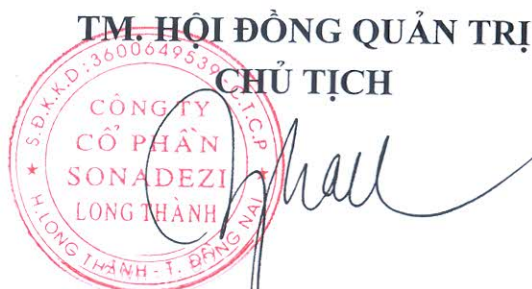 TM. HỘI ĐỒNG QUẢN TRỊ
CHỦ TỊCH
S.Đ.K.K.D:3600649539-C.T.C.P
CÔNG TY
CỔ PHẦN
SONADEZI
LONG THÀNH
H.LONG THÀNH - T. ĐỒNG NAI